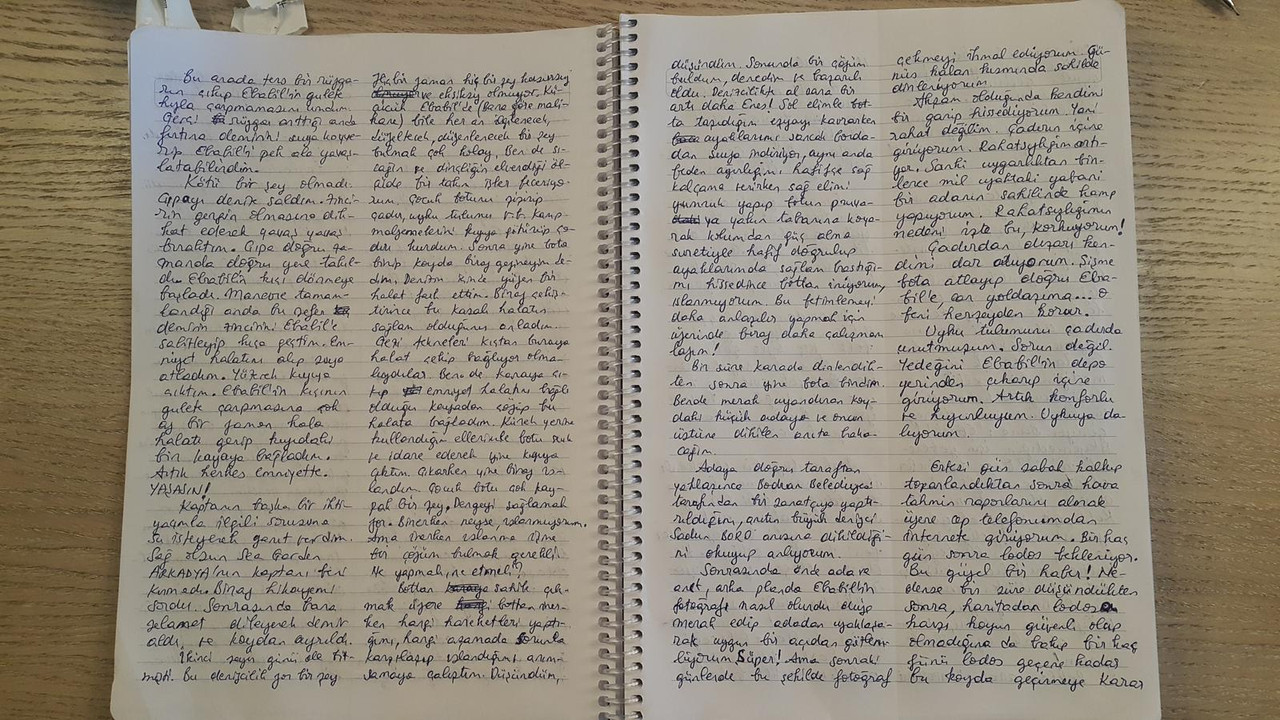 Bu arada ters bir rüzga-
rın çıkıp Ebabil'in gulete
hızla çarpmamasını umdum.
Gerçi rüzgar arttığı anda
fırtına demirini suya koyve-
rip Ebabil'i pek ala yavaş-
latabilirdim.
Kötü bir şey olmadı.
Çıpayı denize saldım. Zinci-
rin gergin olmasına dik-
kat ederek yavaş yavaş
bıraktım. Çıpa doğru za-
manda doğru yere takıl-
dı. Ebabilin kıçı dönmeye
başladı. Manevra tamam-
landığı anda bu sefer
demirin zincirini Ebabil'e
sabitleyip kıça geçtim. Em-
niyet halatını alıp suya
atladım. Yüzerek kıyıya
çıktım. Ebabil'in kıçının
gulete çarpmasına çok
az bir zaman kala
halatı gerip kıyıdaki
bir kayaya bağladım.
Artık herkes emniyette.
YAŞASIN!
Kaptanın başka bir ihti-
yacımla ilgili sorusuna
su isteyerek yanıt verdim.
Sağ olsun Sea Garden
ARKADYA'nın kaptanı beni
kırmadı. Biraz hikayemi
sordu. Sonrasında bana
selamet dileyerek demir
aldı, ve koydan ayrıldı.
İkinci seyir günü de bit-
mişti. Bu denizcilik zor bir şey
Hiçbir zaman hiç bir şey kusursuz
ve eksiksiz olmuyor. Kü-
çücük Ebabil'de (bana göre mali-
kane) bile her an açılacak,
düzeltilecek, düzenlenecek bir şey
bulmak çok kolay. Ben de sı-
cağın ve dinçliğin elverdiği öl-
çüde bir takım işler beceriyo-
rum. Çocuk botunu şişirip
çadır, uyku tulumu v.b. kamp
malzemelerini kıyıya götürüp ça-
dırı kurdum. Sonra yine bota
binip koyda biraz gezineyim de-
dim. Denizin içinde yüzen bir
halat fark ettim. Biraz çekiş-
tirince bu kazalı halatın
sağlam olduğunu anladım.
Gezi tekneleri kıştan buraya
halat çekip bağlıyor olma-
lıydılar. Ben de karaya çı-
kıp emniyet halatını bağlı
olduğu kayadan çözüp bu
halata bağladım. Kürek yerine
kullandığım ellerimle botu sevk
ve idare ederek yine kıyıya
çıktım. Çıkarken yine biraz ıs-
landım. Çocuk botu çok kay-
pak bir şey. Dengeyi sağlamak
zor. Binerken neyse, ıslanmıyorsun.
Ama inerken ıslanma işine
bir çözüm bulmak gerekli.
Ne yapmalı, ne etmeli?
Bottan sahile çık-
mak üzere bottan iner-
ken hangi hareketleri yaptı-
ğımı, hangi aşamada sorunla
karşılaşıp ıslandığımı anım-
samaya çalıştım. Düşündüm,
düşündüm. Sonunda bir çözüm
buldum, denedim ve başarılı
oldu. Denizcilikte al sana bir
artı daha Enes! Sol elimle bot-
ta taşıdığım eşyayı kavrarken
ayaklarımı sancak borda-
dan suya indiriyor, aynı anda
beden ağırlığımı hafifçe sağ
kalçama verirken sağ elimi
yumruk yapıp botun pruva-
ya yakın tabanına koya-
rak kolumdan güç alma
suretiyle hafif doğrulup
ayaklarımda sağlam bastığı-
mı hissedince bottan iniyorum,
ıslanmıyorum. Bu betimlemeyi
daha anlaşılır yapmak için
üzerinde biraz daha çalışmam
lazım!
Bir süre karada dinlendik-
ten sonra yine bota bindim.
Bende merak uyandıran koy-
daki küçük adaya ve onun
üstüne dikilen anıta baka-
cağım.
Adaya doğru taraftan
yaklaşınca Bodrum Belediyesi
tarafından bir sanatçıya yaptı-
rıldığını, anıtın büyük denizci
Sadun BORO anısına dikildiği-
ni okuyup anlıyorum.
Sonrasında önde ada ve
anıt, arka planda Ebabil'in
fotoğrafı nasıl olurdu diye
merak edip adadan uzaklaşa-
rak uygun bir açıdan görüntü-
lüyorum. Süper! Ama sonraki
günlerde bu şekilde fotoğraf
çekmeyi ihmal ediyorum. Gü-
nün kalan kısmında sahilde
dinleniyorum.
Akşam olduğunda kendimi
bir garip hissediyorum. Yani
rahat değilim. Çadırın içine
giriyorum. Rahatsızlığım artı-
yor. Sanki uygarlıktan bin-
lerce mil uzaktaki yabani
bir adanın sahilinde kamp
yapıyorum. Rahatsızlığımın
nedeni işte bu, korkuyorum!
Çadırdan dışarı ken-
dimi dar atıyorum. Şişme
bota atlayıp doğru Eba-
bil'e, can yoldaşıma... o
beni herşeyden korur.
Uyku tulumunu çadırda
unutmuşum. Sorun değil.
Yedeğini Ebabil'in depo
yerinden çıkarıp içine
giriyorum. Artık konforlu
ve huzurluyum. Uykuya da-
lıyorum.
Ertesi gün sabah kalkıp
toparlandıktan sonra hava
tahmin raporlarını almak
üzere cep telefonumdan
internete giriyorum. Bir kaç
gün sonra lodos bekleniyor.
Bu güzel bir haber! Ne-
dense bir süre düşündükten
sonra, haritadan lodosa
karşı koyun güvenli olup
olmadığına da bakıp bir kaç
günü lodos geçene kadar
bu koyda geçirmeye karar